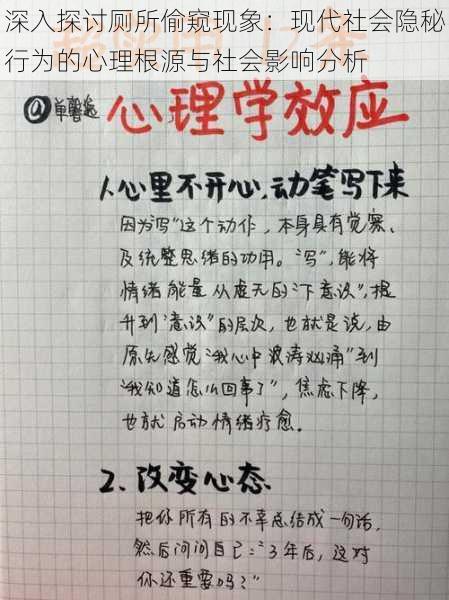 深入探讨厕所偷窥现象：现代社会隐秘
行为的心理根源与社会影响分析
@单馨
心理学效应
1.心里不开心,动笔写下来
因为"写"这个动作，本身具有觉察、
及统整思绪的功用。"写",能将
情绪能量从虚无的"下意识",提
升到"意识"的层次，也就是说,由
原先感觉"我心中波涛汹涌"到
"我知道怎么回事了"，焦虑下降,
也就启动情绪疗愈。
2.改变心态
把你所有的不幸总结成一句话,
然后问问自己:"3年后，这对
你还重要吗?"